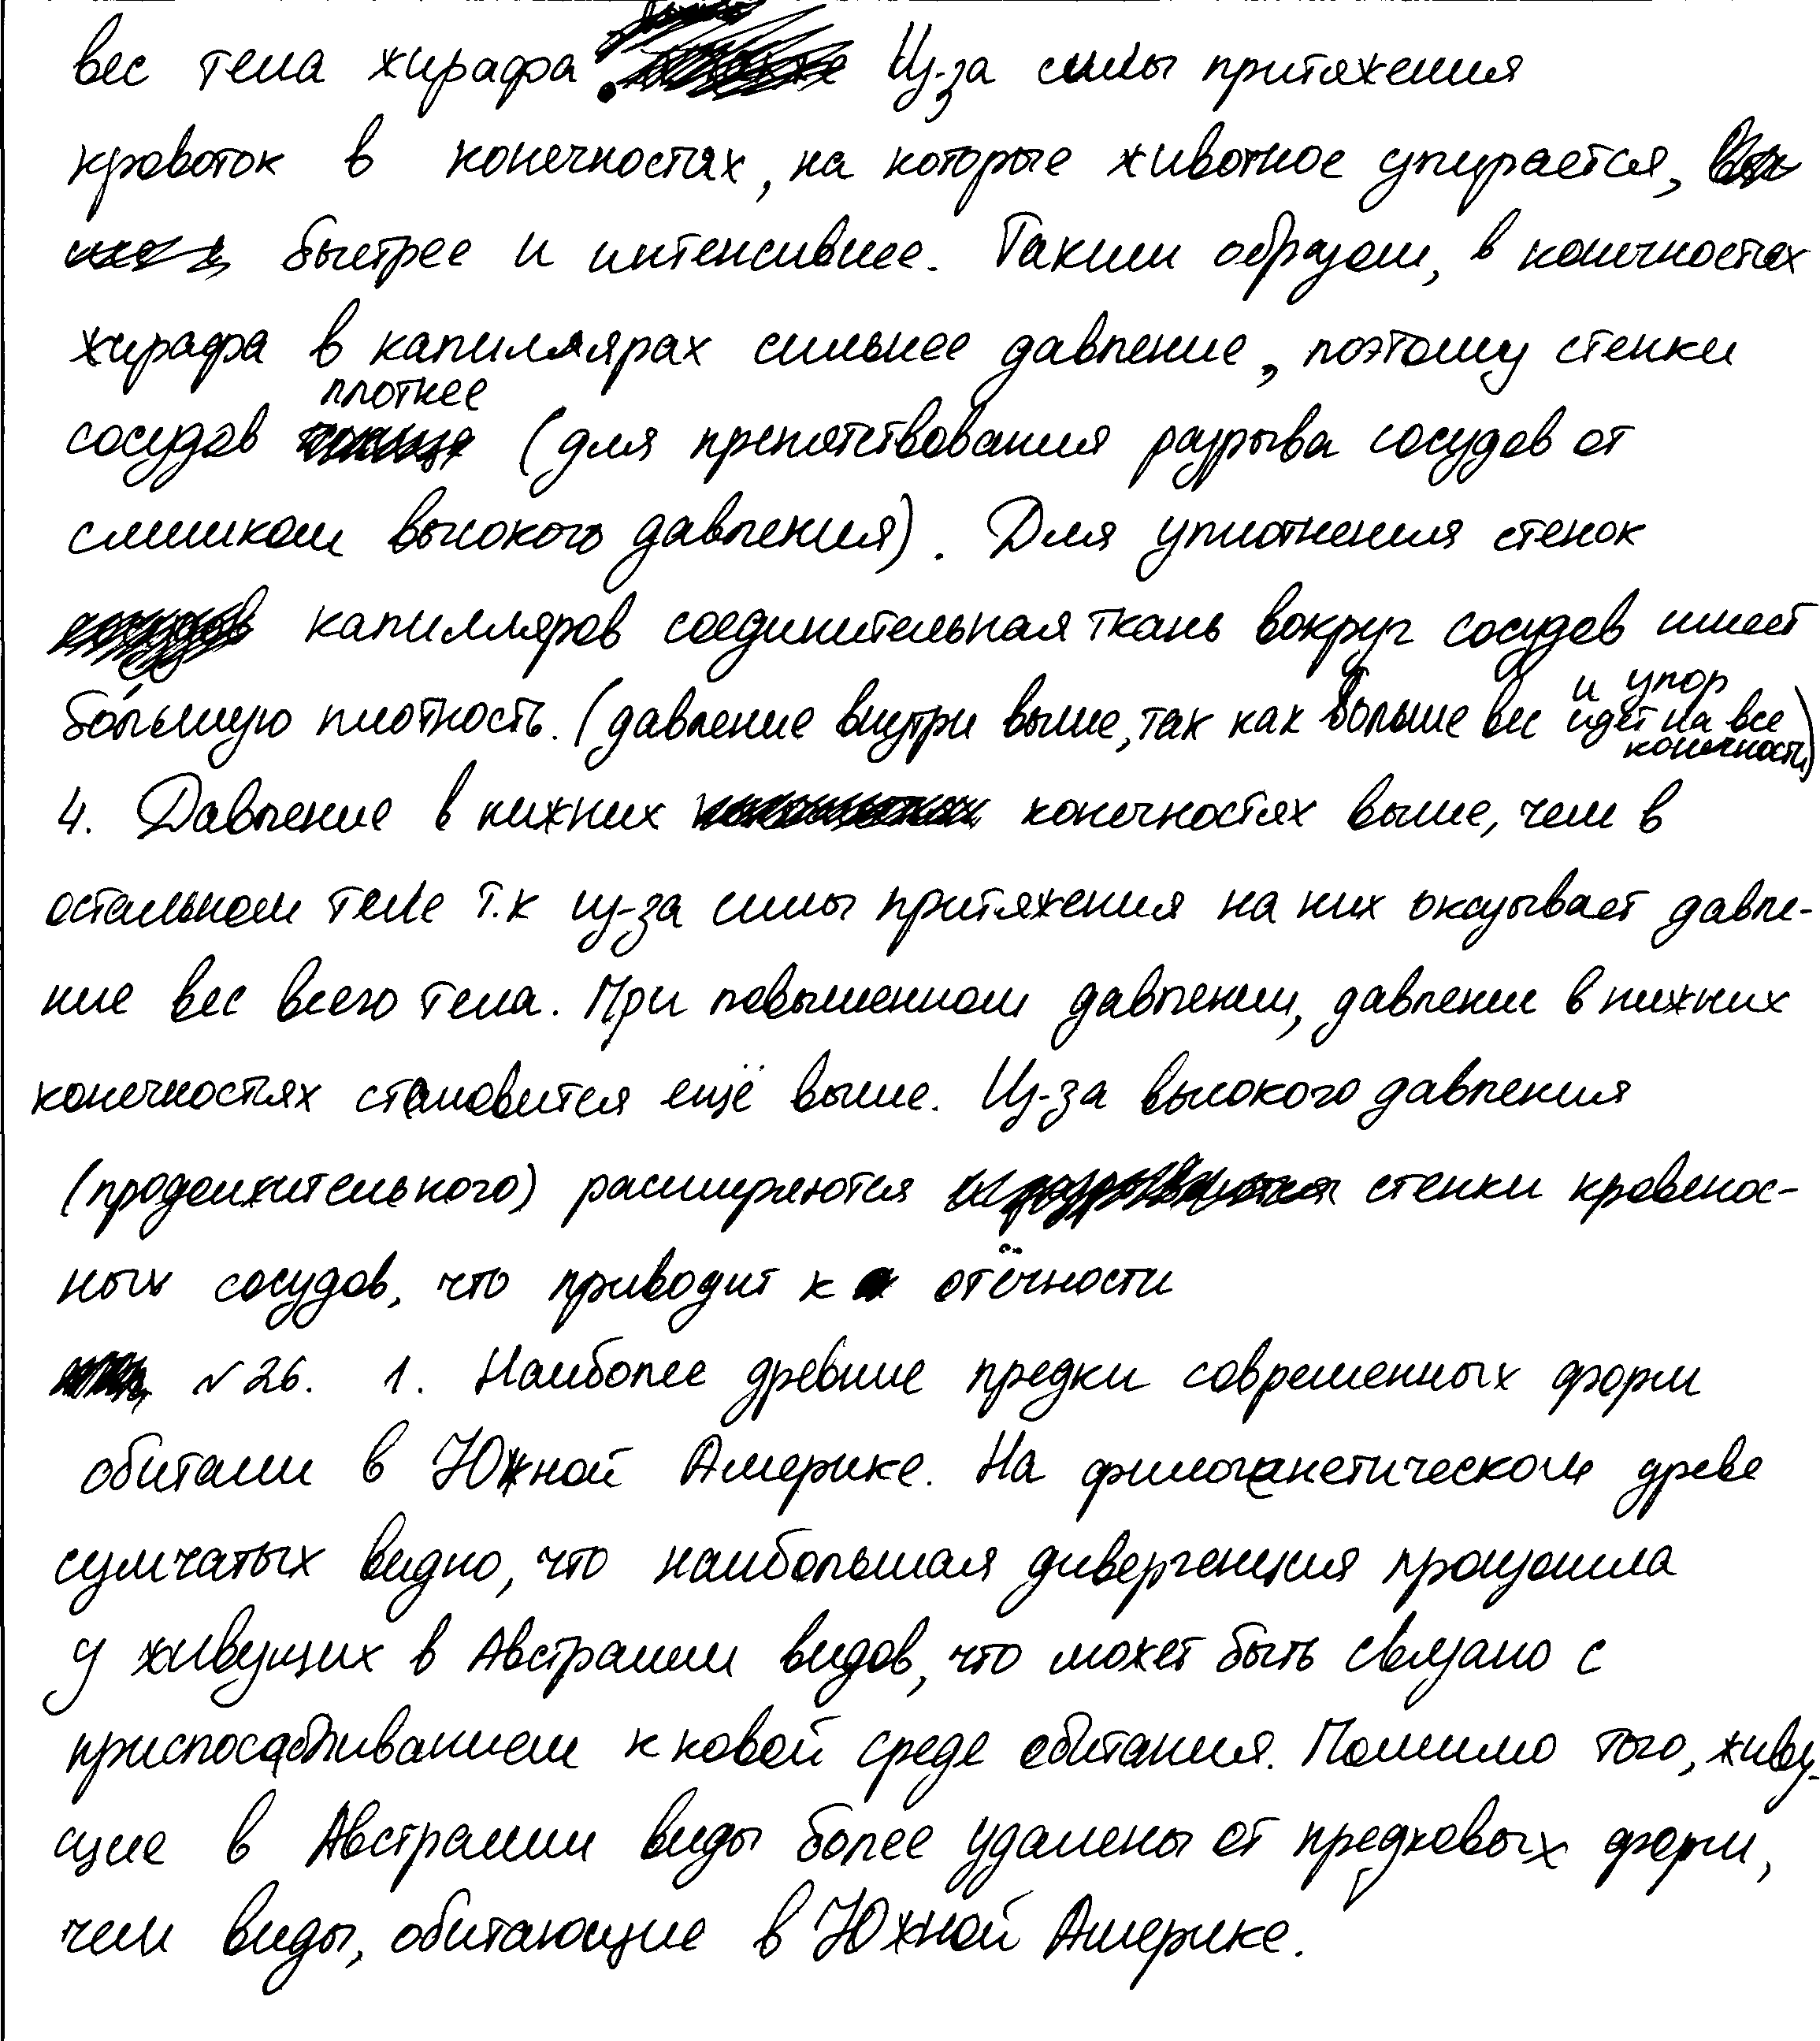 вес тела жирафа. Из-за силы притяжения
кровоток в конечностях, на которые животное упирается,
быстрее и интенсивнее. Таким образом, в конечностях
жирафа в капиллярах сильнее давление, поэтому стенки
плотнее
сосудов (для препятствования разрыва сосудов от
слишком высокого давления). Для уплотнения стенок
капилляров соединительная ткань вокруг сосудов имеет
бо́льшую плотность. (давление внутри выше, так как больше вес и упор идёт на все конечности)
4. Давление в нижних конечностях выше, чем в
остальном теле т.к из-за силы притяжения на них оказывает давле-
ние вес всего тела. При повышенном давлении, давление в нижних
конечностях становится ещё выше. Из-за высокого давления
(продолжительного) расширяются стенки кровенос-
ных сосудов, что приводит к отёчности
№26. 1. Наиболее древние предки современных форм
обитали в Южной Америке. На филогенетическом древе
сумчатых видно, что наибольшая дивергенция произошла
у живущих в Австралии видов, что может быть связано с
приспосабливанием к новой среде обитания. Помимо того, живу-
щие в Австралии виды более удалены от предковых форм,
чем виды, обитающие в Южной Америке.